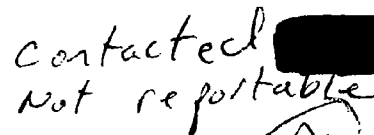 contacted
Not reportable